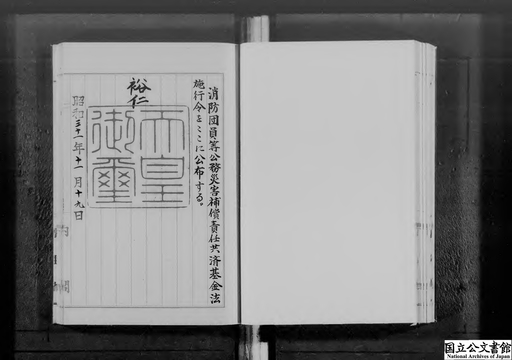 消防団員等公務災害補償責任共済基金法
施行令をここに公布する。
裕仁
天皇
御璽
昭和三十一年十一月十九日
国立公文書館
National Archives of Japan